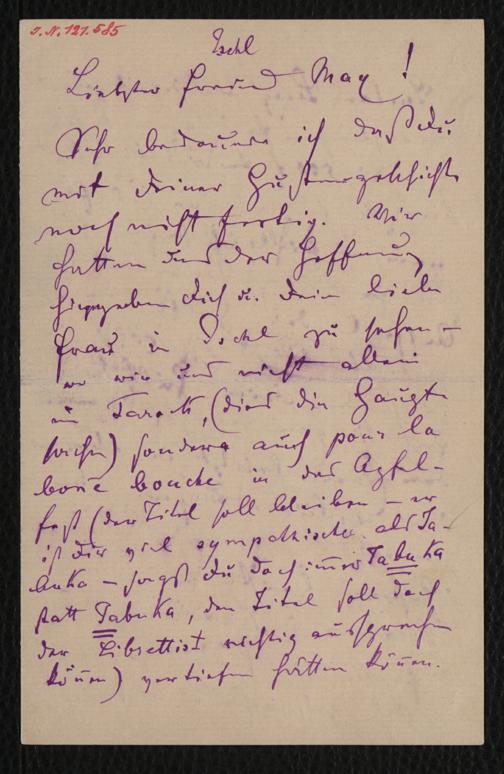 I.N. 121.585
Ischl
Liebster Freund Max!
Sehr bedauere ich daß du
mit deiner Hustengeschichte
noch nicht fertig. Wir
hatten uns der Hoffnung
hingegeben dich u. deine liebe
Frau in Ischl zu sehen –
wo wir uns nicht allein
in Tarock, (dies die Haupt
sache) sondern auch pour la
bonne bouche in das Apfel-
fest (der Titel soll bleiben – er
ist dir viel sympathischer als Ja-
buka – sagst du doch immer Tabuka
statt Jabuka, den Titel soll doch
der Librettist richtig aussprechen
können) vertiefen hätten können.